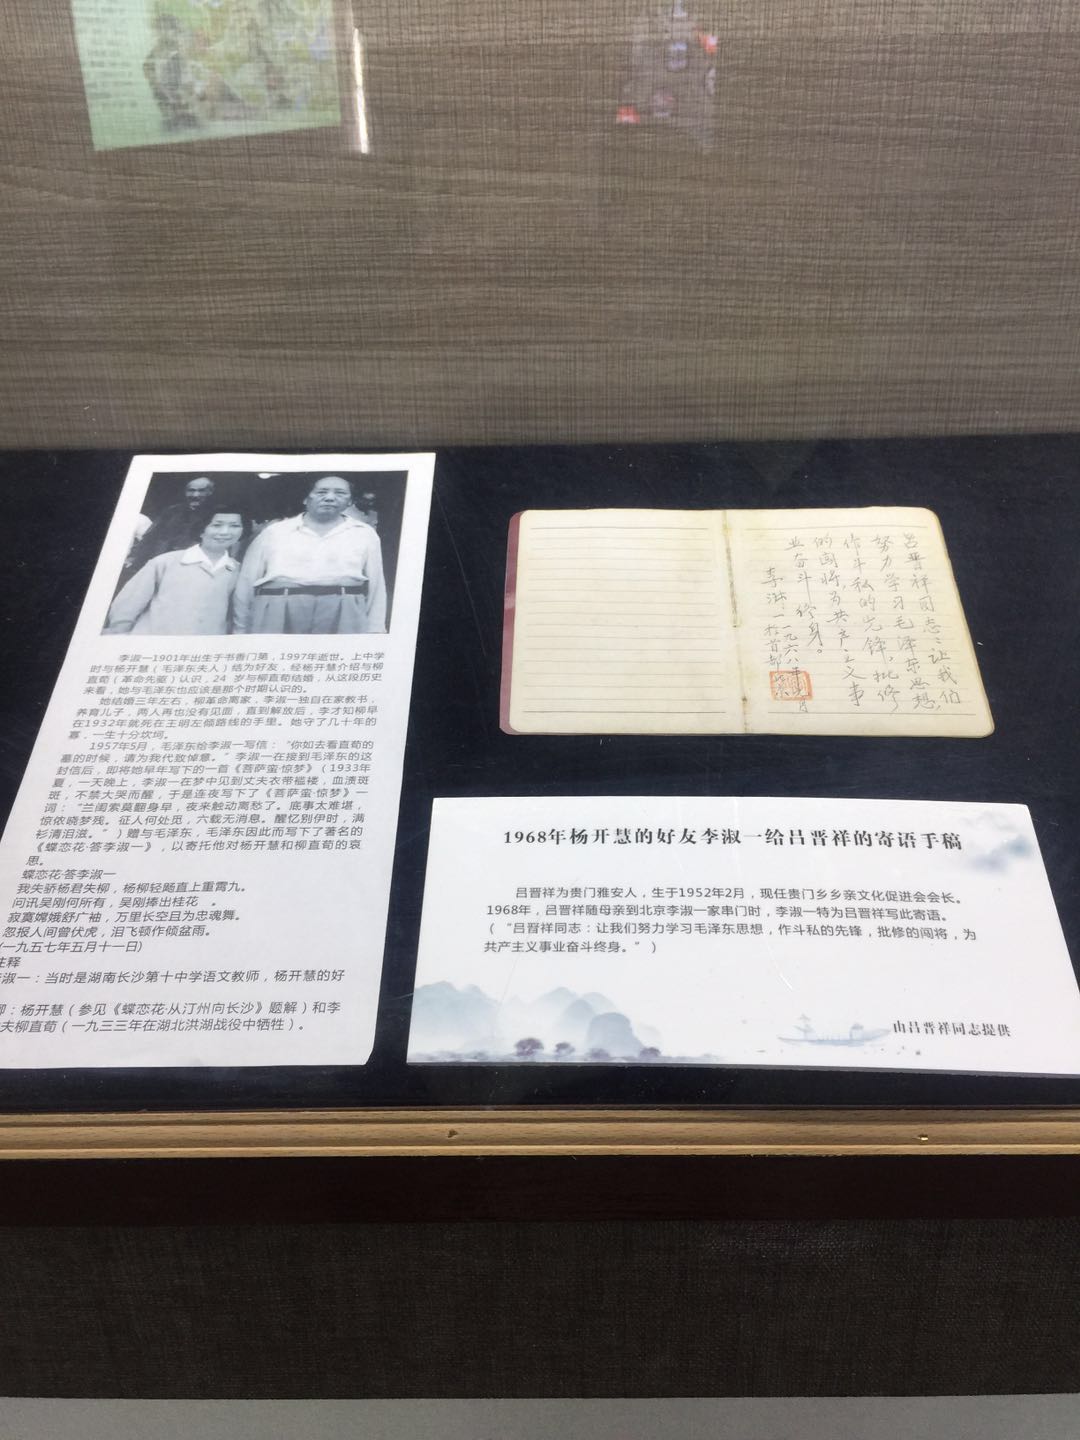 李淑一1901年出生于书香门第，1997年逝世。上中学
时与杨开慧（毛泽东夫人）结为好友，经杨开慧介绍与柳
直荀（革命先驱）认识，24 岁与柳直荀结婚，从这段历史
来看，她与毛泽东也应该是那个时期认识的。
她结婚三年左右，柳革命离家，李淑一独自在家教书，
养育儿子，两人再也没有见面，直到解放后，李才知柳早
在1932年就死在王明左倾路线的手里。她守了几十年的
寡，一生十分坎坷。
1957年5月，毛泽东给李淑一写信：“你如去看直荀的
墓的时候，请为我代致悼意。”李淑一在接到毛泽东的这
封信后，即将她早年写下的一首《菩萨蛮·惊梦》（1933年
夏，一天晚上，李淑一在梦中见到丈夫衣带褴褛，血渍斑
斑，不禁大哭而醒，于是连夜写下了《菩萨蛮·惊梦》一
词：“兰闺索莫翻身早，夜来触动离愁了。底事太难堪，
惊侬晓梦残。征人何处觅，六载无消息。醒忆别伊时，满
衫清泪滋。”）赠与毛泽东，毛泽东因此而写下了著名的
《蝶恋花·答李淑一》，以寄托他对杨开慧和柳直荀的哀
思。
蝶恋花·答李淑一
我失骄杨君失柳，杨柳轻飏直上重霄九。
问讯吴刚何所有，吴刚捧出桂花 。
寂寞嫦娥舒广袖，万里长空且为忠魂舞。
忽报人间曾伏虎，泪飞顿作倾盆雨。
(一九五七年五月十一日)
注释
李淑一：当时是湖南长沙第十中学语文教师，杨开慧的好
柳：杨开慧（参见《蝶恋花·从汀州向长沙》题解）和李
夫柳直荀（一九三三年在湖北洪湖战役中牺牲）。
吕晋祥同志：让我们
努力学习毛泽东思想，
作斗私的先锋，批修
的闯将，为共产主义事
业奋斗终身。
李淑一
一九六八年
于首都
1968年杨开慧的好友李淑一给吕晋祥的寄语手稿
吕晋祥为贵门雅安人，生于1952年2月，现任贵门乡乡亲文化促进会会长。
1968年，吕晋祥随母亲到北京李淑一家串门时，李淑一特为吕晋祥写此寄语。
（“吕晋祥同志：让我们努力学习毛泽东思想，作斗私的先锋，批修的闯将，为
共产主义事业奋斗终身。”）
由吕晋祥同志提供